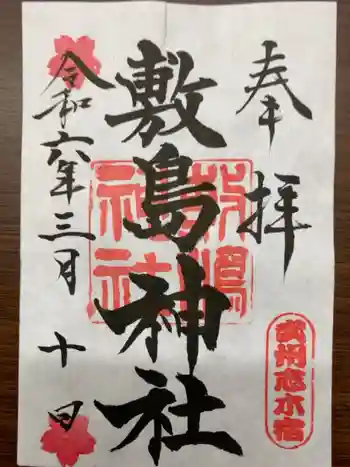 奉拝
敷島神社
令和六年三月十日
敷嶋神社
武州志木宿